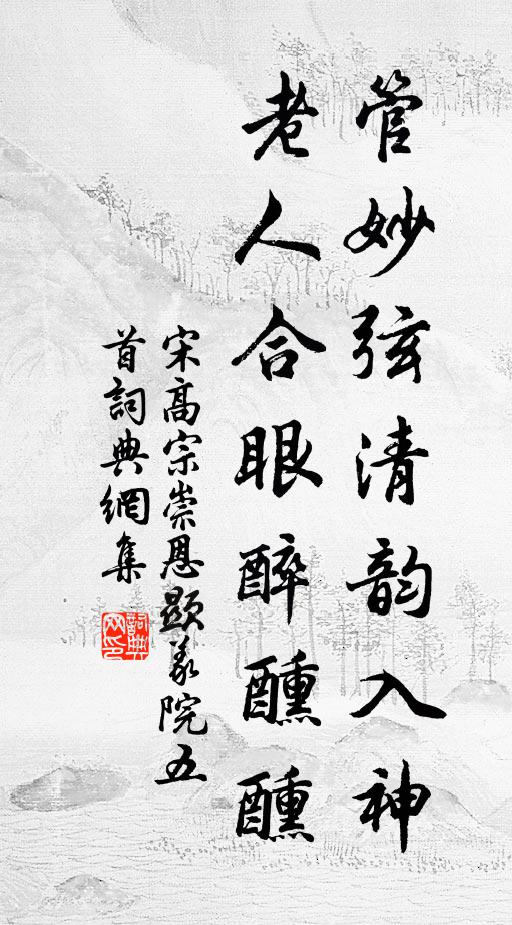 管妙弦清韵入神
老人合眼醉醺醺
宋高宗崇恩顯義院五
首詞典網集
詞典
网印